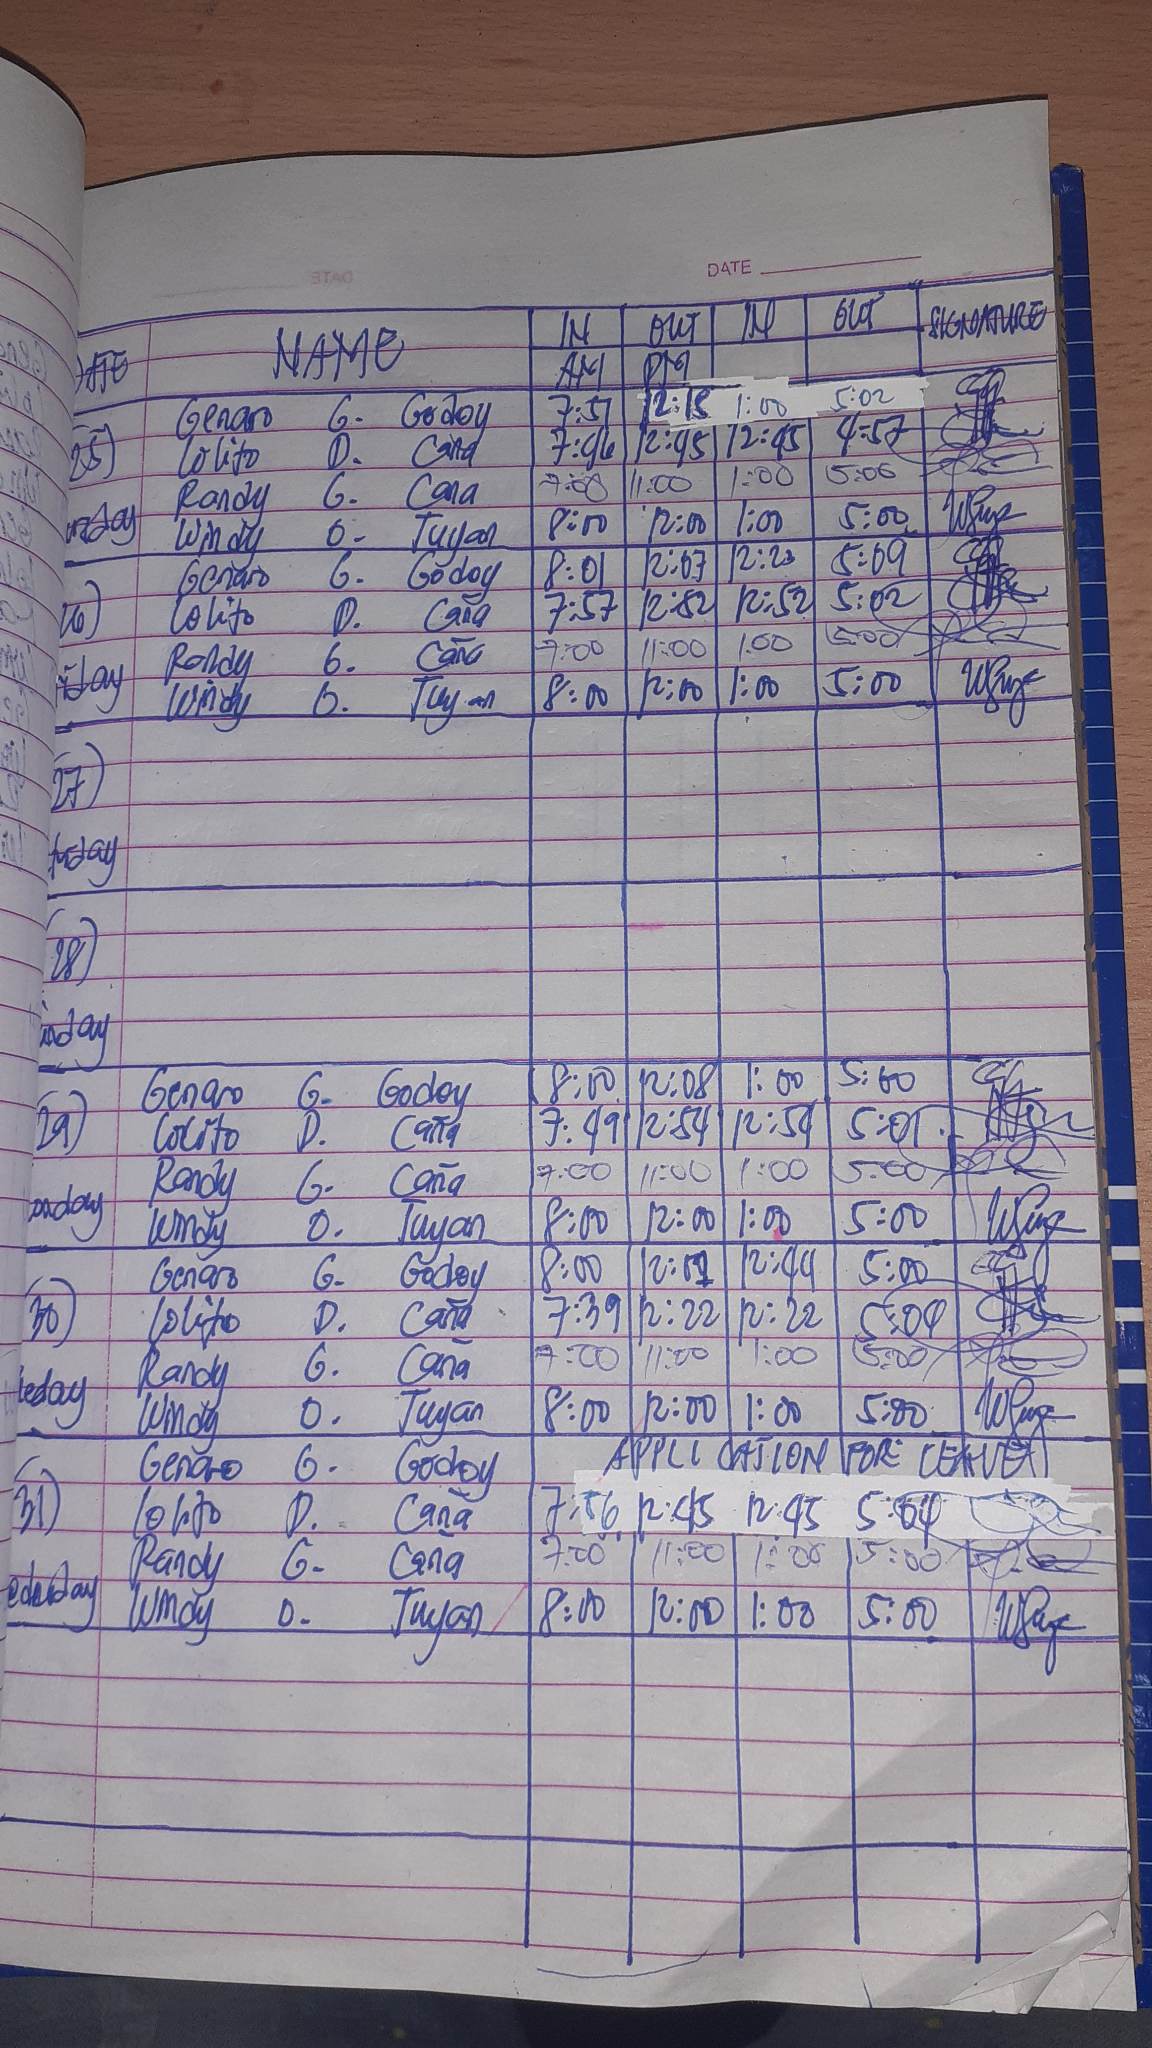 DATE
NAME IN OUT IN OUT SIGNATURE
AM PM
Genaro G. Godoy 7:51 12:15 1:00 5:02
25) Lolito D. Caña 7:46 12:45 12:45 4:57
Randy G. Caña 7:00 11:00 1:00 5:00
Windy O. Tuyan 8:00 12:00 1:00 5:00
Genaro G. Godoy 8:01 12:07 12:23 5:09
26) Lolito D. Caña 7:57 12:52 12:52 5:02
Randy G. Caña 7:00 11:00 1:00 5:00
Windy O. Tuyan 8:00 12:00 1:00 5:00
27)
28)
Genaro G. Godoy 8:00 12:08 1:00 5:00
29) Lolito D. Caña 7:49 12:54 12:54 5:01
Randy G. Caña 7:00 11:00 1:00 5:00
Windy O. Tuyan 8:00 12:00 1:00 5:00
Genaro G. Godoy 8:00 12:44 5:00
30) Lolito D. Caña 7:39 12:22 12:22 5:04
Randy G. Caña 7:00 11:00 1:00 5:00
Windy O. Tuyan 8:00 12:00 1:00 5:00
Genaro G. Godoy APPLICATION FOR LEAVE
31) Lolito D. Caña 7:56 12:45 12:45 5:04
Randy G. Caña 7:00 11:00 1:00 5:00
Windy O. Tuyan 8:00 12:00 1:00 5:00